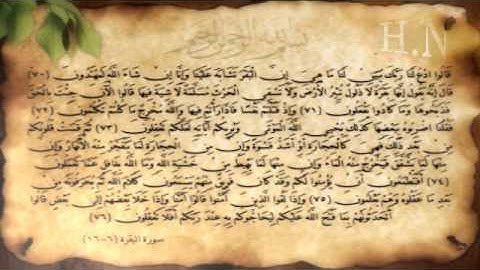 بسم الله الرحمن الرحيم
H.N
قالوا ادع لنا ربك يبين لنا ما هي إن البقر تشابه علينا وإنا إن شاء الله لمهتدون (٧٠)
قال إنه يقول إنها بقرة لا ذلول تثير الأرض ولا تسقي الحرث مسلمة لا شية فيها قالوا الآن جئت بالحق
فذبحوها وما كادوا يفعلون (٧١) وإذ قتلتم نفسا فادارأتم فيها والله مخرج ما كنتم تكتمون (٧٢)
فقلنا اضربوه ببعضها كذلك يحيي الله الموتى ويريكم آياته لعلكم تعقلون (٧٣) ثم قست قلوبكم
من بعد ذلك فهي كالحجارة أو أشد قسوة وإن من الحجارة لما يتفجر منه الأنهار وإن
منها لما يشقق فيخرج منه الماء وإن منها لما يهبط من خشية الله وما الله بغافل عما تعملون
(٧٤) أفتطمعون أن يؤمنوا لكم وقد كان فريق منهم يسمعون كلام الله ثم يحرفونه من
بعد ما عقلوه وهم يعلمون (٧٥) وإذا لقوا الذين آمنوا قالوا آمنا وإذا خلا بعضهم إلى بعض قالوا
أتحدثونهم بما فتح الله عليكم ليحاجوكم به عند ربكم أفلا تعقلون (٧٦)
سورة البقرة